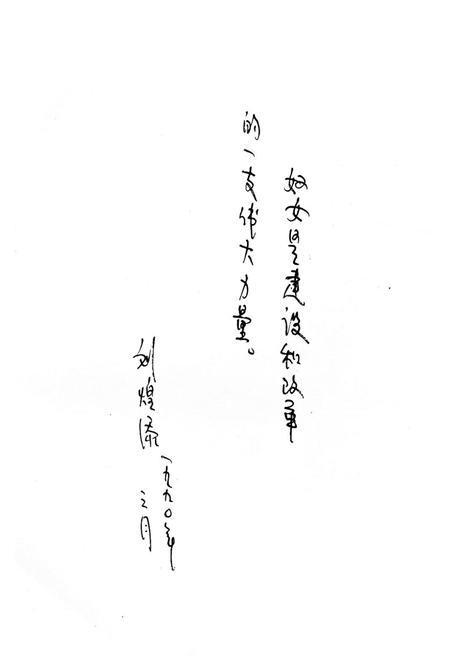 妇女是建设和改革
的一支伟大力量。
刘煌添
一九九〇年
三月